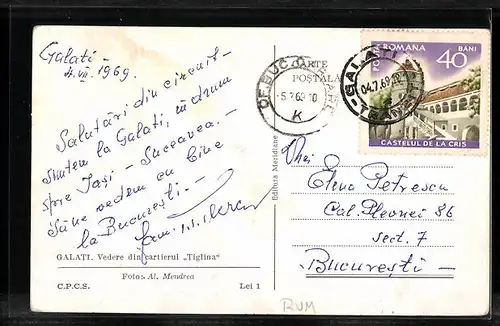 Galati -
4.VII.1969.
Salutări din circuit -
Suntem la Galati, in drum
spre Iași - Suceava. -
vedem cu bine
la București. -
Fam.
GALATI. Vedere din cartierul „Tiglina"
Foto: Al. Mendrea
C.P.C.S. Lei 1
Editura Meridiane
CARTE
POȘTALĂ
OF. BUC.
-5.7.69.10
K
GALATI
04.7.69
POSTA ROMANA BANI
40
CASTELUL DE LA CRIS
Elena Petrescu
Cal. Plevnei 86
sect. 7
București -
RUM